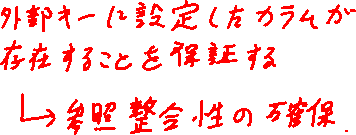 外部キーに設定したカラムが
存在することを保証する
↳参照整合性の確保.